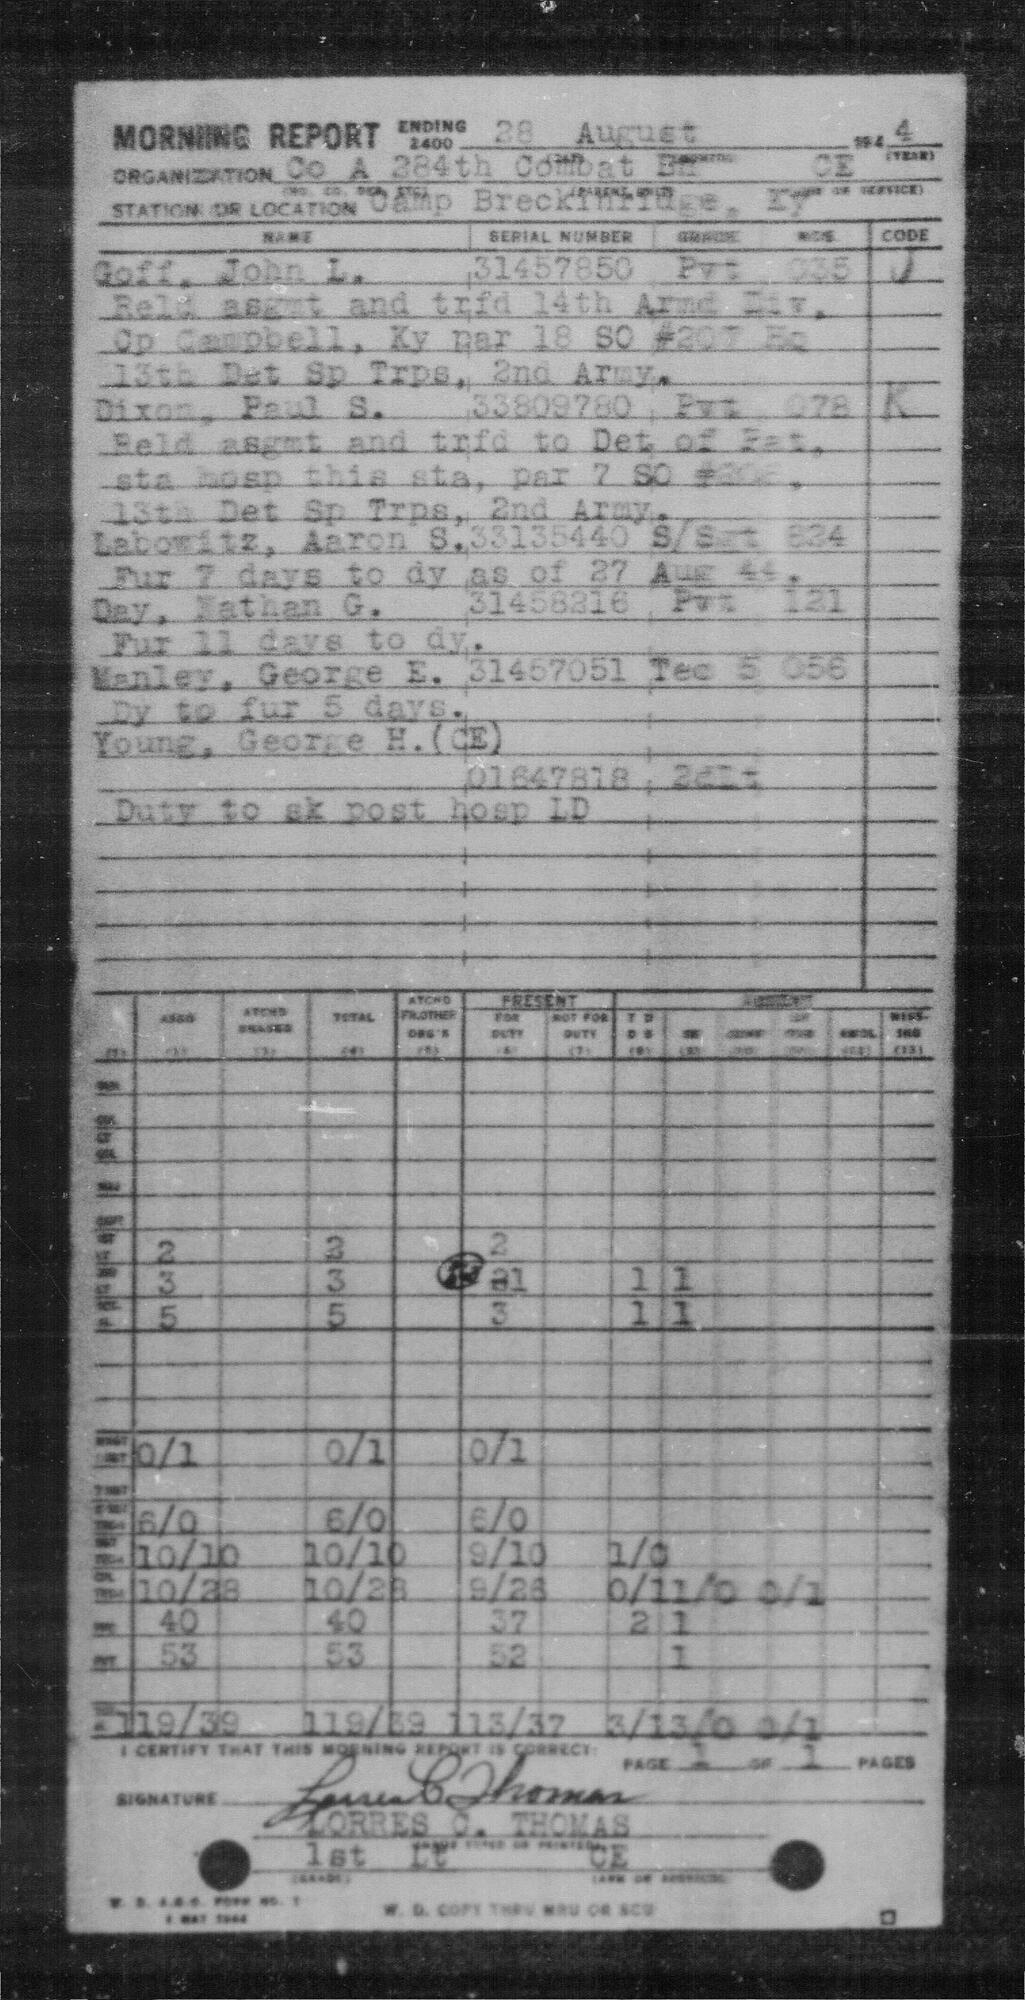 MORNING REPORT ENDING 2400 28 August 1944
ORGANIZATION Co A 284th Combat Bn CE
STATION OR LOCATION Camp Breckinridge, Ky
NAME SERIAL NUMBER GRADE MOS CODE
Goff, John L. 31457850 Pvt 035 J
Reld asgmt and trfd 14th Armd Div,
Cp Campbell, Ky par 18 SO #207 Hq
13th Det Sp Trps, 2nd Army.
Dixon, Paul S. 33809780 Pvt 078 K
Reld asgmt and trfd to Det of Pat,
sta hosp this sta, par 7 SO
13th Det Sp Trps, 2nd Army.
Labowitz, Aaron S. 33135440 S/Sgt 824
Fur 7 days to dy as of 27 Aug 44.
Day, Nathan G. 31458216 Pvt 121
Fur 11 days to dy.
Manley, George E. 31457051 Tec 5 056
Dy to fur 5 days.
Young, George H.(CE)
01647818 2dLt
Duty to sk post hosp LD
ASGD ATCHD UNASGD TOTAL ATCHD FR.OTHER ORG'S PRESENT FOR DUTY NOT FOR DUTY ABSENT T D D S SK MISS-ING
2 2 2
3 3 1 1 1
5 5 3 1 1
0/1 0/1 0/1
6/0 6/0 6/0
10/10 10/10 9/10 1/0
10/28 10/28 9/26 0/1 1/0 0/1
PFC 40 40 37 2 1
PVT 53 53 52 1
119/39 119/39 113/37 3/1 3/0 0/1
I CERTIFY THAT THIS MORNING REPORT IS CORRECT: PAGE 1 OF 1 PAGES
SIGNATURE Lorres C Thomas
LORRES C. THOMAS
(NAME TYPED OR PRINTED)
1st Lt CE
(GRADE) (ARM OR SERVICE)
W. D. A.G.O. FORM NO. 1
1 MAY 1944
W. D. COPY THRU MRU OR SCU